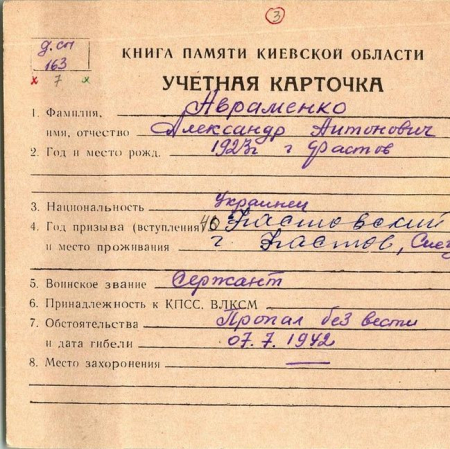 3
д. сп
163
х 7 х
КНИГА ПАМЯТИ КИЕВСКОЙ ОБЛАСТИ
УЧЕТНАЯ КАРТОЧКА
1. Фамилия, Авраменко
имя, отчество Александр Антонович
2. Год и место рожд. 1923г г Фастов
3. Национальность Украинец
4. Год призыва (вступления) 40 Фастовский
и место проживания г. Фастов,
5. Воинское звание Сержант
6. Принадлежность к КПСС, ВЛКСМ
7. Обстоятельства Пропал без вести
и дата гибели 07. 7. 1942
8. Место захоронения —